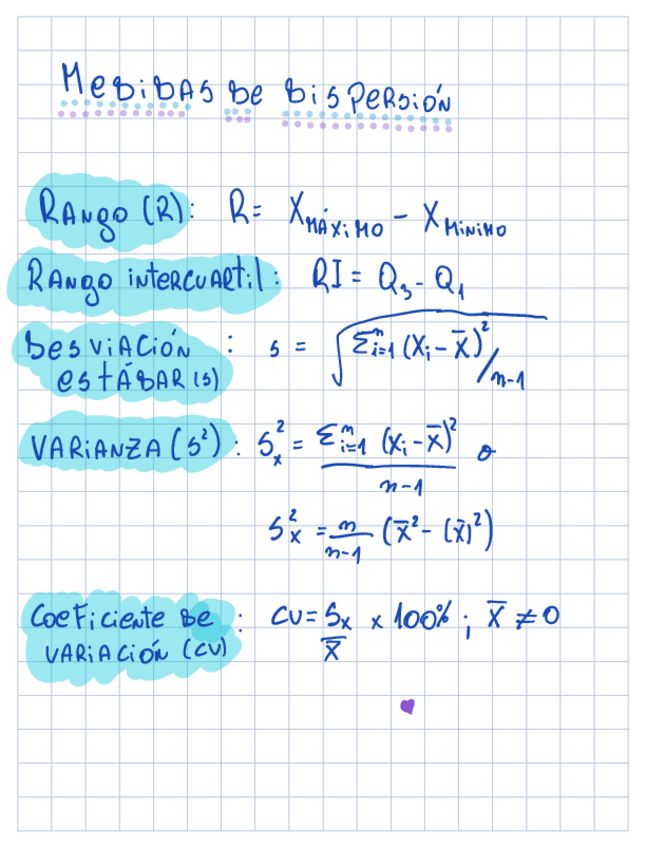 MEDIDAS DE DISPERSIÓN
RANGO (R): R= X MÁXIMO - X MÍNIMO
RANGO INTERCUARTIL: RI = Q₃ - Q₁
DESVIACIÓN ESTÁDAR (s) : s = √(Σⁿᵢ₌₁ (Xᵢ - X̄)² / n-1)
VARIANZA (S²): Sₓ² = Σⁿᵢ₌₁ (xᵢ - x̄)² / n-1 o
Sₓ² = n/n-1 (x̄² - (x̄)²)
COEFICIENTE DE VARIACIÓN (CV) : CV = Sₓ/X̄ x 100% ; X̄ ≠ 0